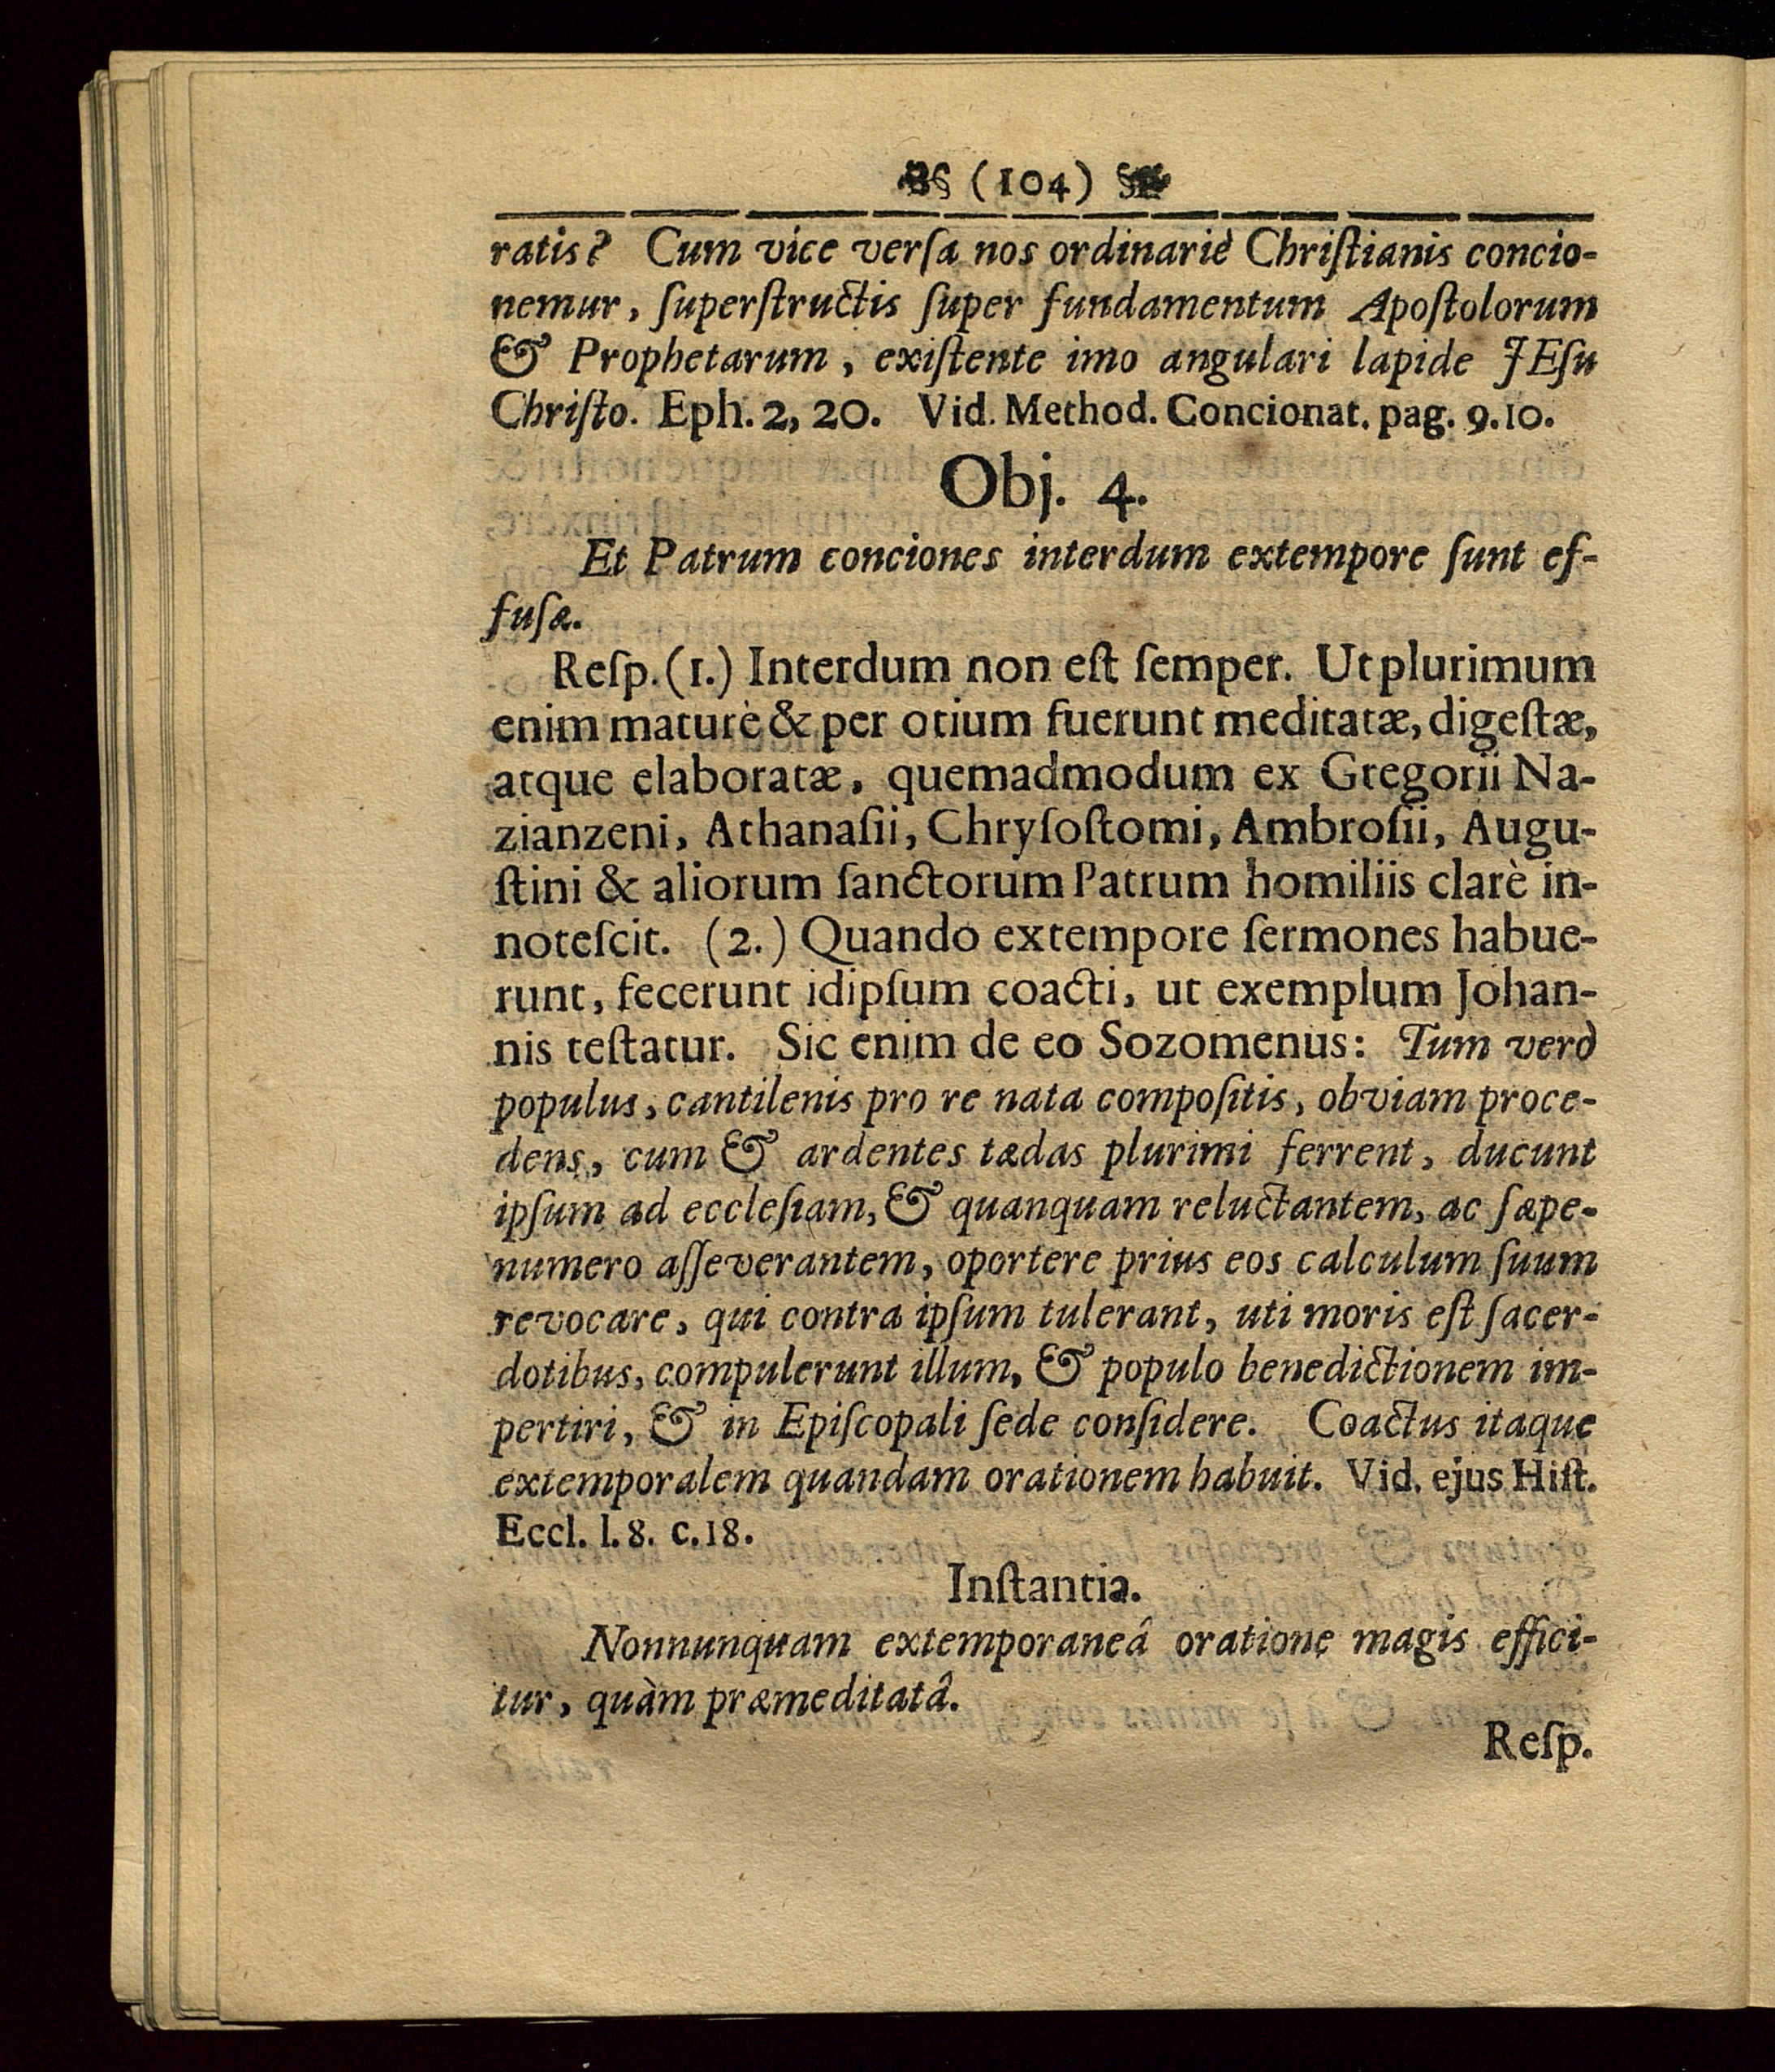 (104)
ratis? Cum vice verſa nos ordinariè Chriſtianis concio-
nemur, ſuperſtructis ſuper fundamentum Apoſtolorum
& Prophetarum, exiſtente imo angulari lapide JEſu
Chriſto. Eph. 2, 20. Vid. Method. Concionat. pag. 9.10.
Obj. 4.
Et Patrum conciones interdum extempore ſunt ef-
fuſæ.
Reſp. (1.) Interdum non eſt ſemper. Ut plurimum
enim maturè & per otium fuerunt meditatæ, digeſtæ,
atque elaboratæ, quemadmodum ex Gregorii Na-
zianzeni, Athanaſii, Chryſoſtomi, Ambroſii, Augu-
ſtini & aliorum ſanctorum Patrum homiliis clarè in-
noteſcit. (2.) Quando extempore ſermones habue-
runt, fecerunt idipſum coacti, ut exemplum Johan-
nis teſtatur. Sic enim de eo Sozomenus: Tum verò
populus, cantilenis pro re nata compoſitis, obviam proce-
dens, cum & ardentes tædas plurimi ferrent, ducunt
ipſum ad eccleſiam, & quanquam reluctantem, ac ſæpe-
numero aſſeverantem, oportere prius eos calculum ſuum
revocare, qui contra ipſum tulerant, uti moris eſt ſacer-
dotibus, compulerunt illum, & populo benedictionem im-
pertiri, & in Epiſcopali ſede conſidere. Coactus itaque
extemporalem quandam orationem habuit. Vid. ejus Hiſt.
Eccl. l. 8. c. 18.
Inſtantia.
Nonnunquam extemporaneâ oratione magis effici-
tur, quàm præmeditatâ.
Reſp.